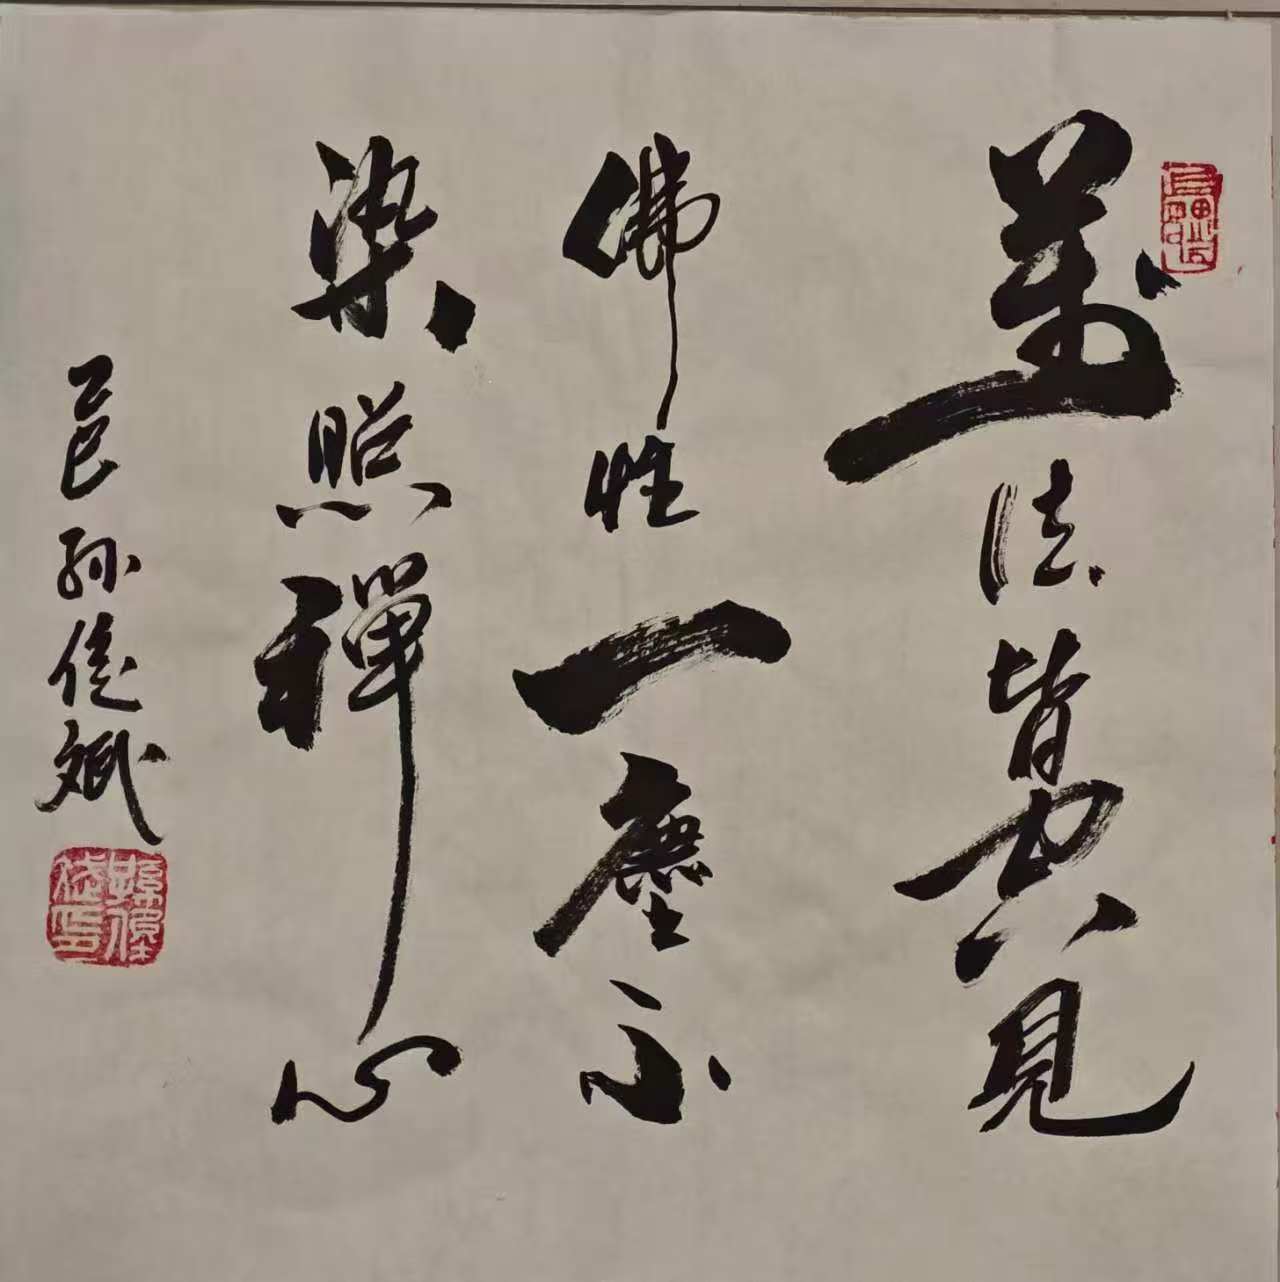 萬法皆空見
佛性一塵不
染照禪心
乙巳孫俊斌